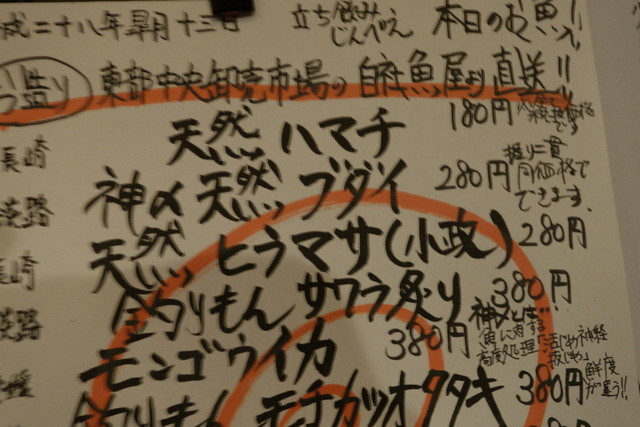 成二十八年皐月十三日 立ち飲み じんべえ 本日のお魚!!
盛り 東部中央卸売市場の自社魚屋より直送!!
長崎 天然ハマチ 180円
淡路 神〆天然ブダイ 280円 握り二貫 同価格で できます。
長崎 天然ヒラマサ(小政) 280円
淡路 釣りもんサワラ炙り 380円
モンゴウイカ 380円
神〆とは… 魚に対する 高度処理
活〆め神経 抜き〆め
釣りもんモチガツオタタキ 380円 鮮度 が違う!!